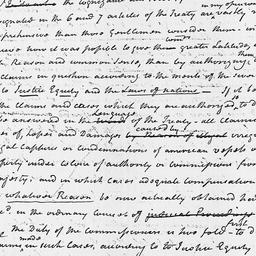 the cognizance
in my opinion
designated in the 6 and 7 articles of the Treaty are vastly
comprehensive than those Gentlemen consider them - in
how it was possible to give them greater Latitude,
words
Reason and common sense, than by authorizing
claims in question according to the merits of the several
to Justice Equity and the laws of nations - If it be
the claims and cases which they are authorized, to
answered in the Language of the Treaty - all claims
of, Losses and Damages caused by irregular
illegal captures or condemnations of american vessels
property under colour of authority or commissions from
Majesty; and in which cases adequate compensation
whatever Reason be now actually obtained
in the ordinary course of judicial Proceedings
first
The Duty of the Commissioners is two fold - to
made
claims, in such Cases, according to Justice Equity